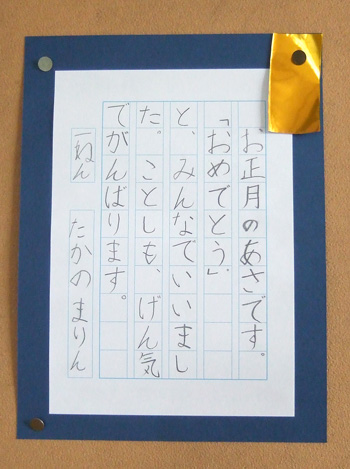 お正月のあさです。
「おめでとう」
と、みんなでいいまし
た。ことしも、げん気
でがんばります。
一ねん たかの まりん